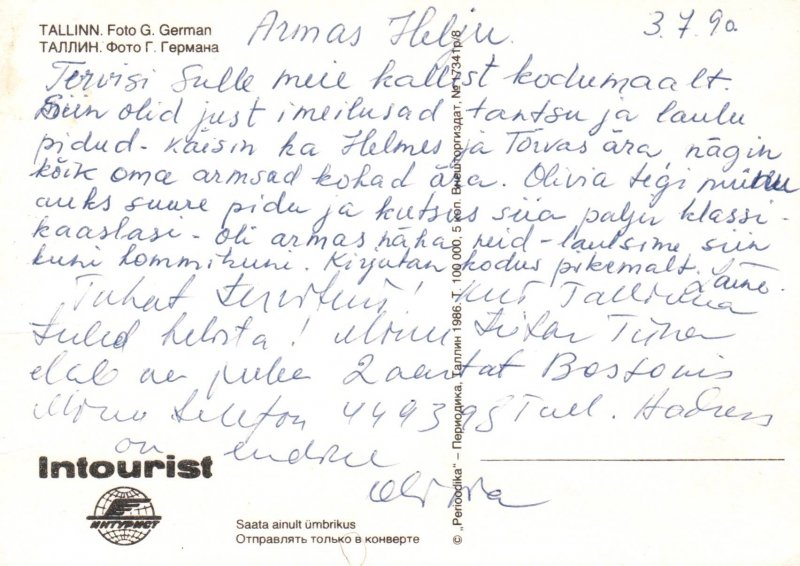 TALLINN. Foto G. German
ТАЛЛИН. Фото Г. Германа
Armas Helju.
3.7.90
Tervisi Sulle meie kallist kodumaalt.
Siin olid just imeilusad tantsu ja laulu
pidud - käisin ka Helmes ja Tõrvas ära nägin
kõik oma armsad kohad ära. Olivia tegi minu
auks suure pidu ja kutsus siia palju klassi-
kaaslasi - oli armas näha neid - laulsime siin
kuni hommikuni. Kirjutan kodus pikemalt.
Tuhat tervitust! Kui Tallinna
tuled helista! Minu tütar Tiina
elab ju juba 2 aastat Bostonis
Minu telefon 449398 Tall. Aadress
on endine
Olivia
Intourist
ИНТУРИСТ
Saata ainult ümbrikus
Отправлять только в конверте
© „Perioodika" – Периодика, Таллин 1986. Т. 100 000, 5 коп. Внешторгиздат, № 17341р/8